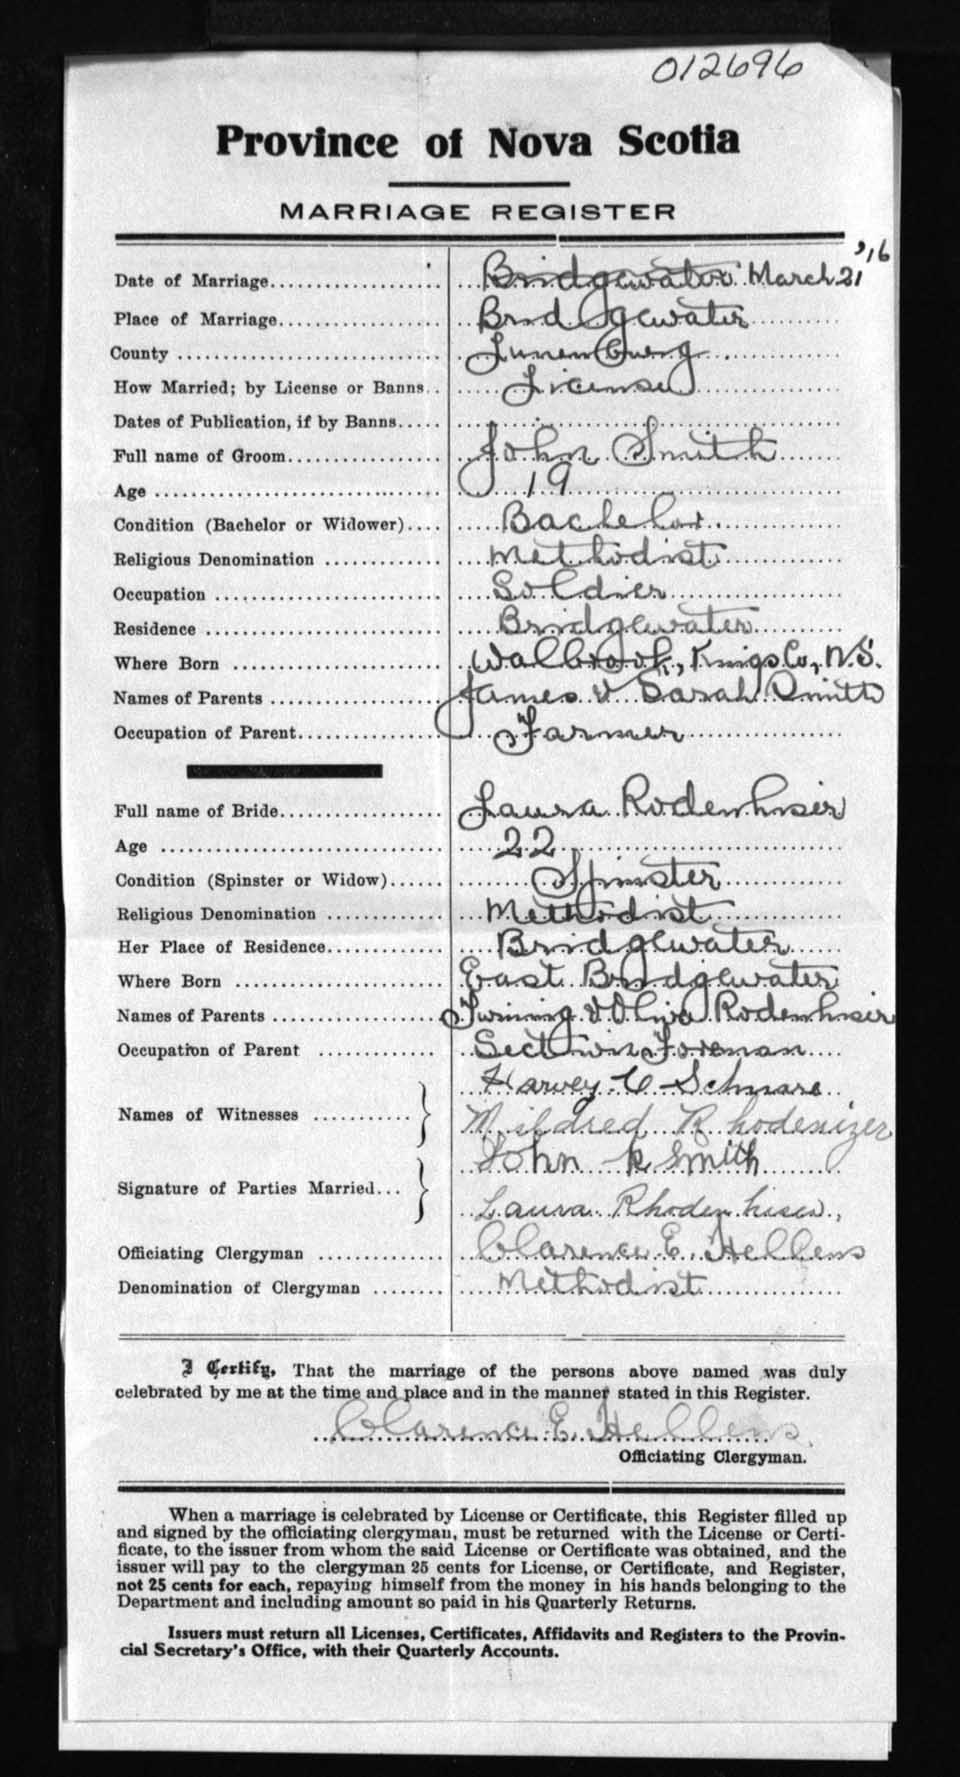 012696
Province of Nova Scotia
MARRIAGE REGISTER
Date of Marriage Bridgewater March 21, '16
Place of Marriage Bridgewater
County Lunenburg
How Married; by License or Banns License
Dates of Publication, if by Banns
Full name of Groom John Smith
Age 19
Condition (Bachelor or Widower) Bachelor
Religious Denomination Methodist
Occupation Soldier
Residence Bridgewater
Where Born Walbrook, Kings Co, N.S.
Names of Parents James & Sarah Smith
Occupation of Parent Farmer
Full name of Bride Laura Rodenhiser
Age 22
Condition (Spinster or Widow) Spinster
Religious Denomination Methodist
Her Place of Residence Bridgewater
Where Born East Bridgewater
Names of Parents Twining & Oliva Rodenhiser
Occupation of Parent Section Foreman
Harvey C Schnare
Names of Witnesses
Mildred Rhodenizer
John R Smith
Signature of Parties Married
Laura Rhodenhiser,
Officiating Clergyman Clarence E. Hellens
Denomination of Clergyman Methodist
I Certify, That the marriage of the persons above named was duly
celebrated by me at the time and place and in the manner stated in this Register.
Clarence E. Hellens
Officiating Clergyman.
When a marriage is celebrated by License or Certificate, this Register filled up
and signed by the officiating clergyman, must be returned with the License or Certi-
ficate, to the issuer from whom the said License or Certificate was obtained, and the
issuer will pay to the clergyman 25 cents for License, or Certificate, and Register,
not 25 cents for each, repaying himself from the money in his hands belonging to the
Department and including amount so paid in his Quarterly Returns.
Issuers must return all Licenses, Certificates, Affidavits and Registers to the Provin-
cial Secretary's Office, with their Quarterly Accounts.